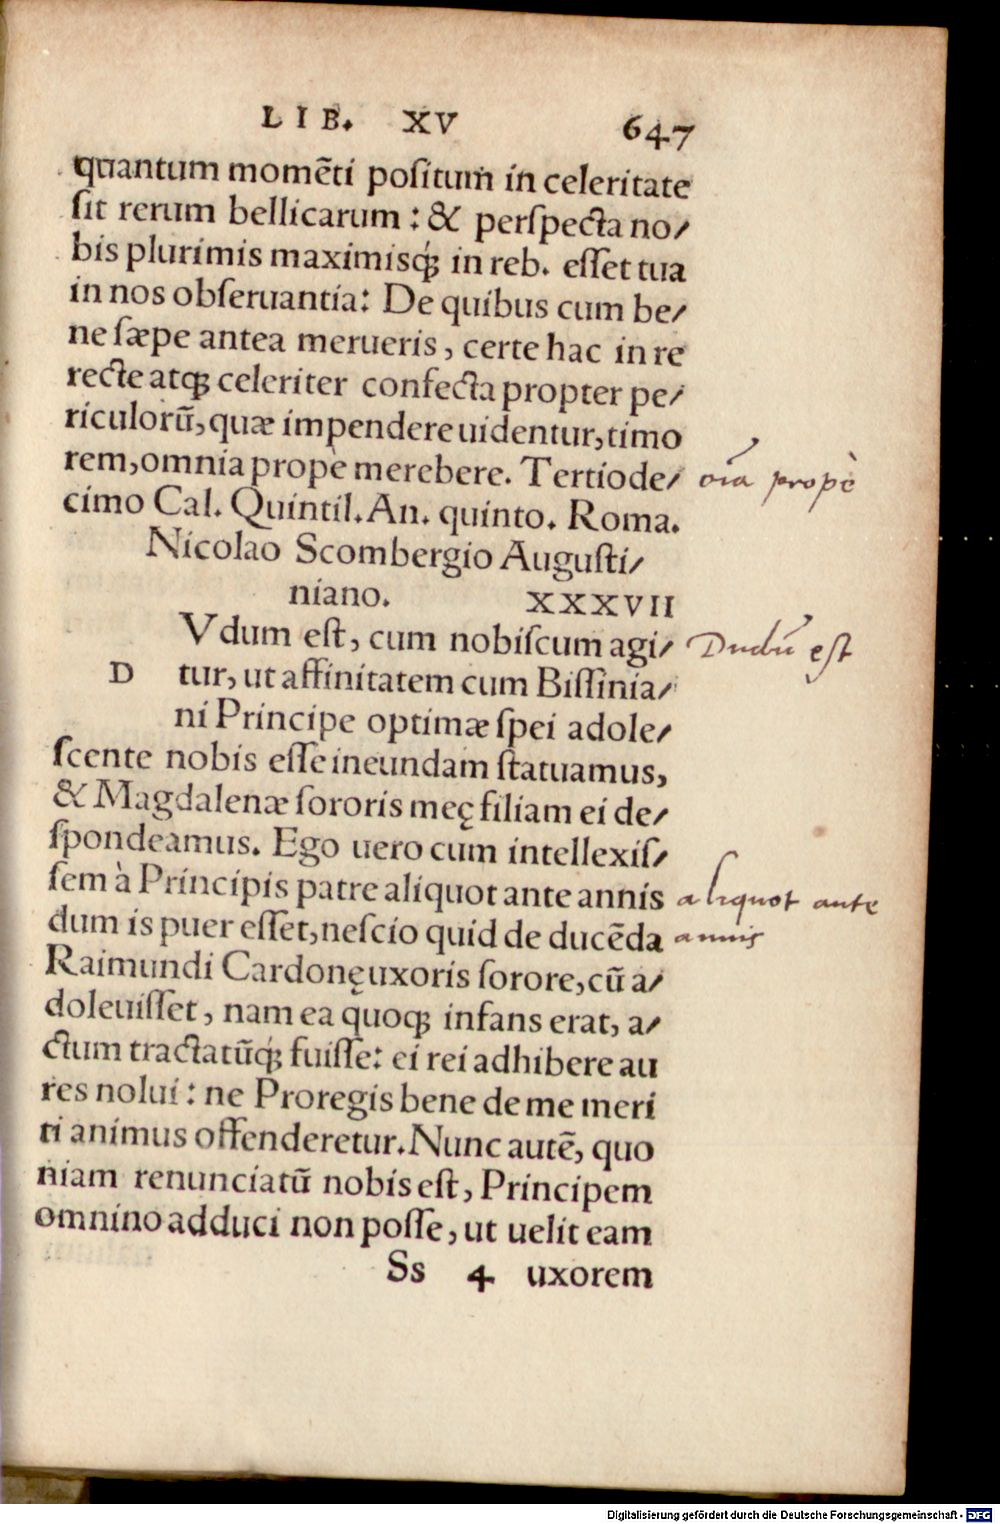 LIB. XV 647
quantum momēti positum in celeritate
sit rerum bellicarum : & perſpecta no/
bis plurimis maximisq́; in reb. eſſet tua
in nos obſeruantia: De quibus cum be/
ne ſæpe antea merueris, certe hac in re
recte atq; celeriter confecta propter pe/
riculorū, quæ impendere uidentur, timo
rem, omnia propè merebere. Tertiode/
oīa propè
cimo Cal. Quintil. An. quinto. Roma.
Nicolao Scombergio Auguſti/
niano. XXXVII
Vdum eſt, cum nobiſcum agi/
Dudū est
D tur, ut affinitatem cum Biſſinia/
ni Principe optimæ ſpei adole/
ſcente nobis eſſe ineundam ſtatuamus,
& Magdalenæ ſororis meę filiam ei de/
ſpondeamus. Ego uero cum intellexiſ/
ſem à Principis patre aliquot ante annis
aliquot ante
dum is puer eſſet, neſcio quid de ducēda
annis
Raimundi Cardonę uxoris ſorore, cū a/
doleuiſſet, nam ea quoq; infans erat, a/
ctum tractatūq́; fuiſſe: ei rei adhibere au
res nolui : ne Proregis bene de me meri
ti animus offenderetur. Nunc autē, quo
niam renunciatū nobis eſt, Principem
omnino adduci non poſſe, ut uelit eam
Ss 4 uxorem
Digitalisierung gefördert durch die Deutsche Forschungsgemeinschaft - DFG